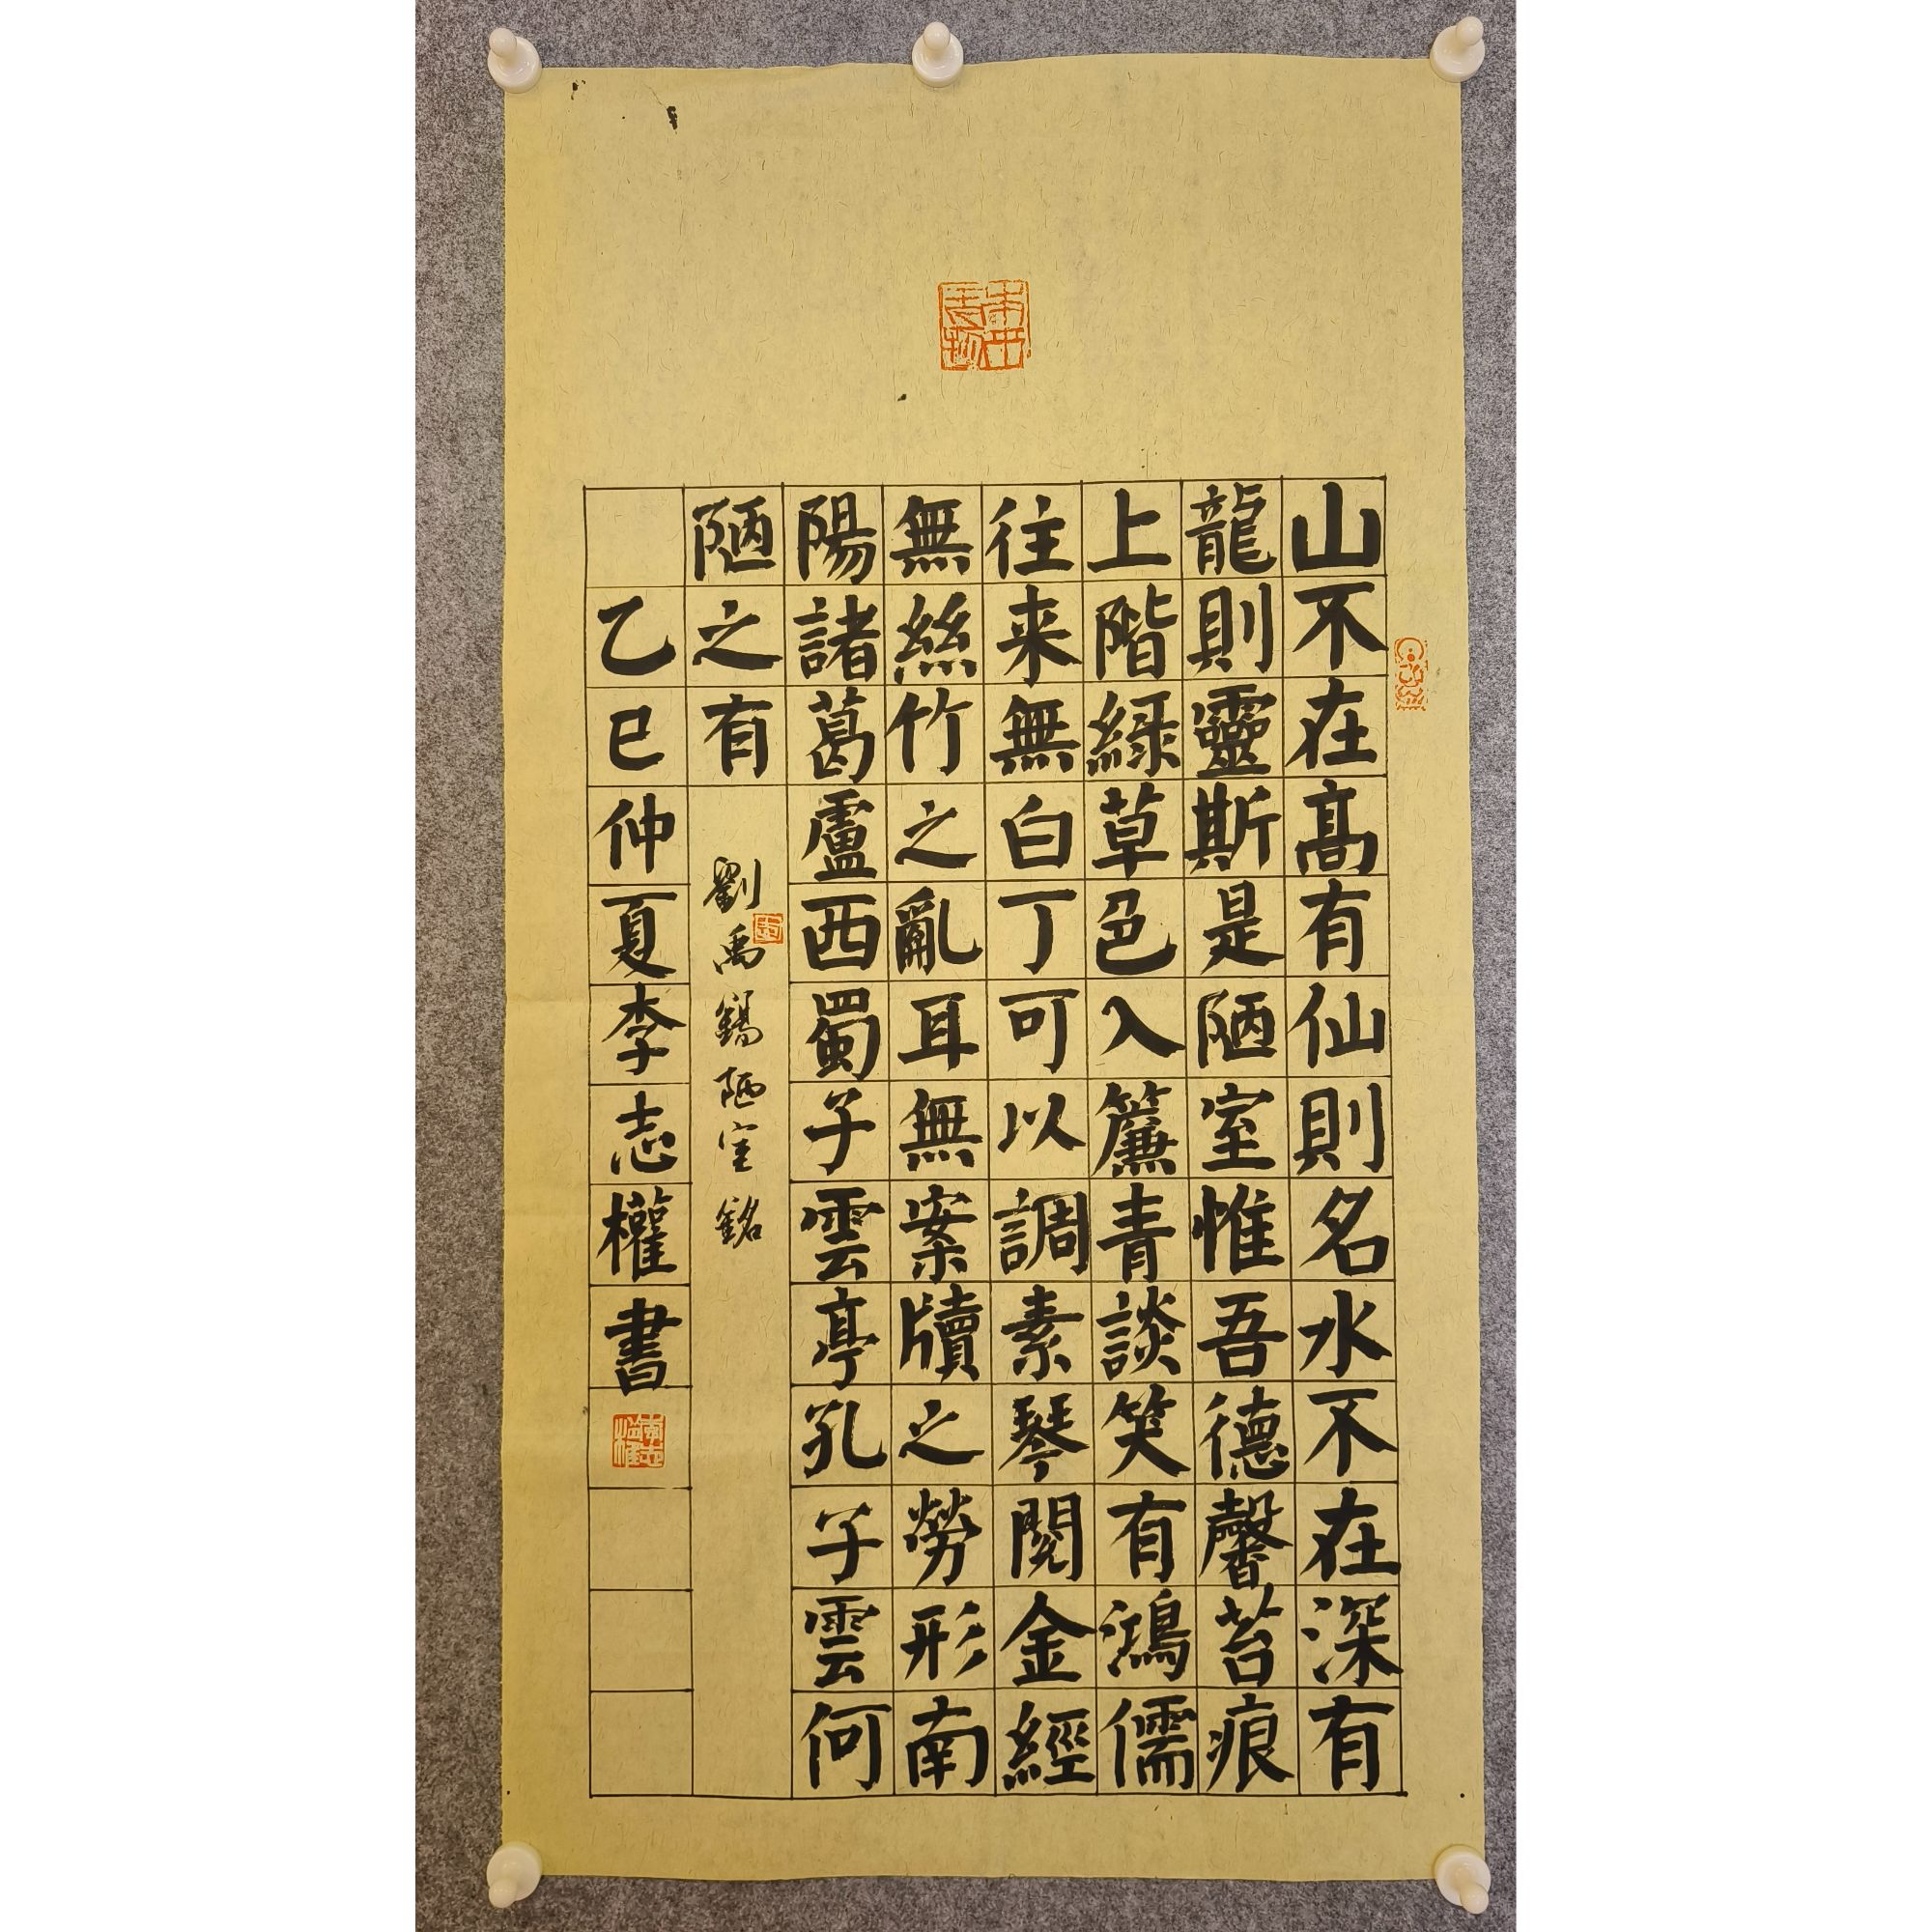 山不在髙有仙則名水不在深有
龍則靈斯是陋室惟吾德馨苔痕
上階緑草色入簾青談笑有鴻儒
往来無白丁可以調素琴閱金經
無絲竹之亂耳無案牘之勞形南
陽諸葛盧西蜀子雲亭孔子雲何
陋之有
劉禹錫陋室銘
乙巳仲夏李志權書
李志權